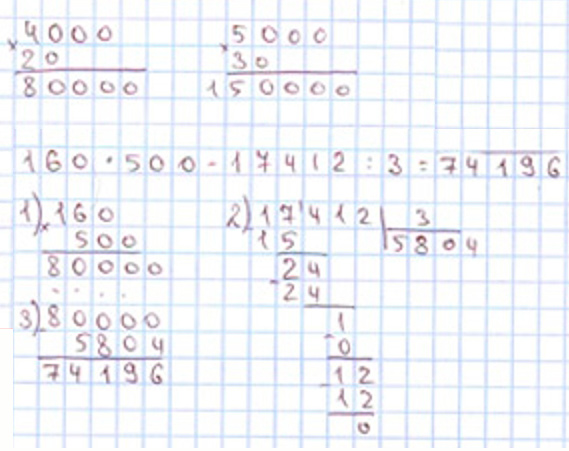 4000
× 20
80000
5000
× 30
150000
160 · 500 - 17412 : 3 = 74196
1) 160
× 500
80000
2) 17412 | 3
15 | 5804
24
- 24
1
- 0
- 12
12
0
3) 80000
5804
74196